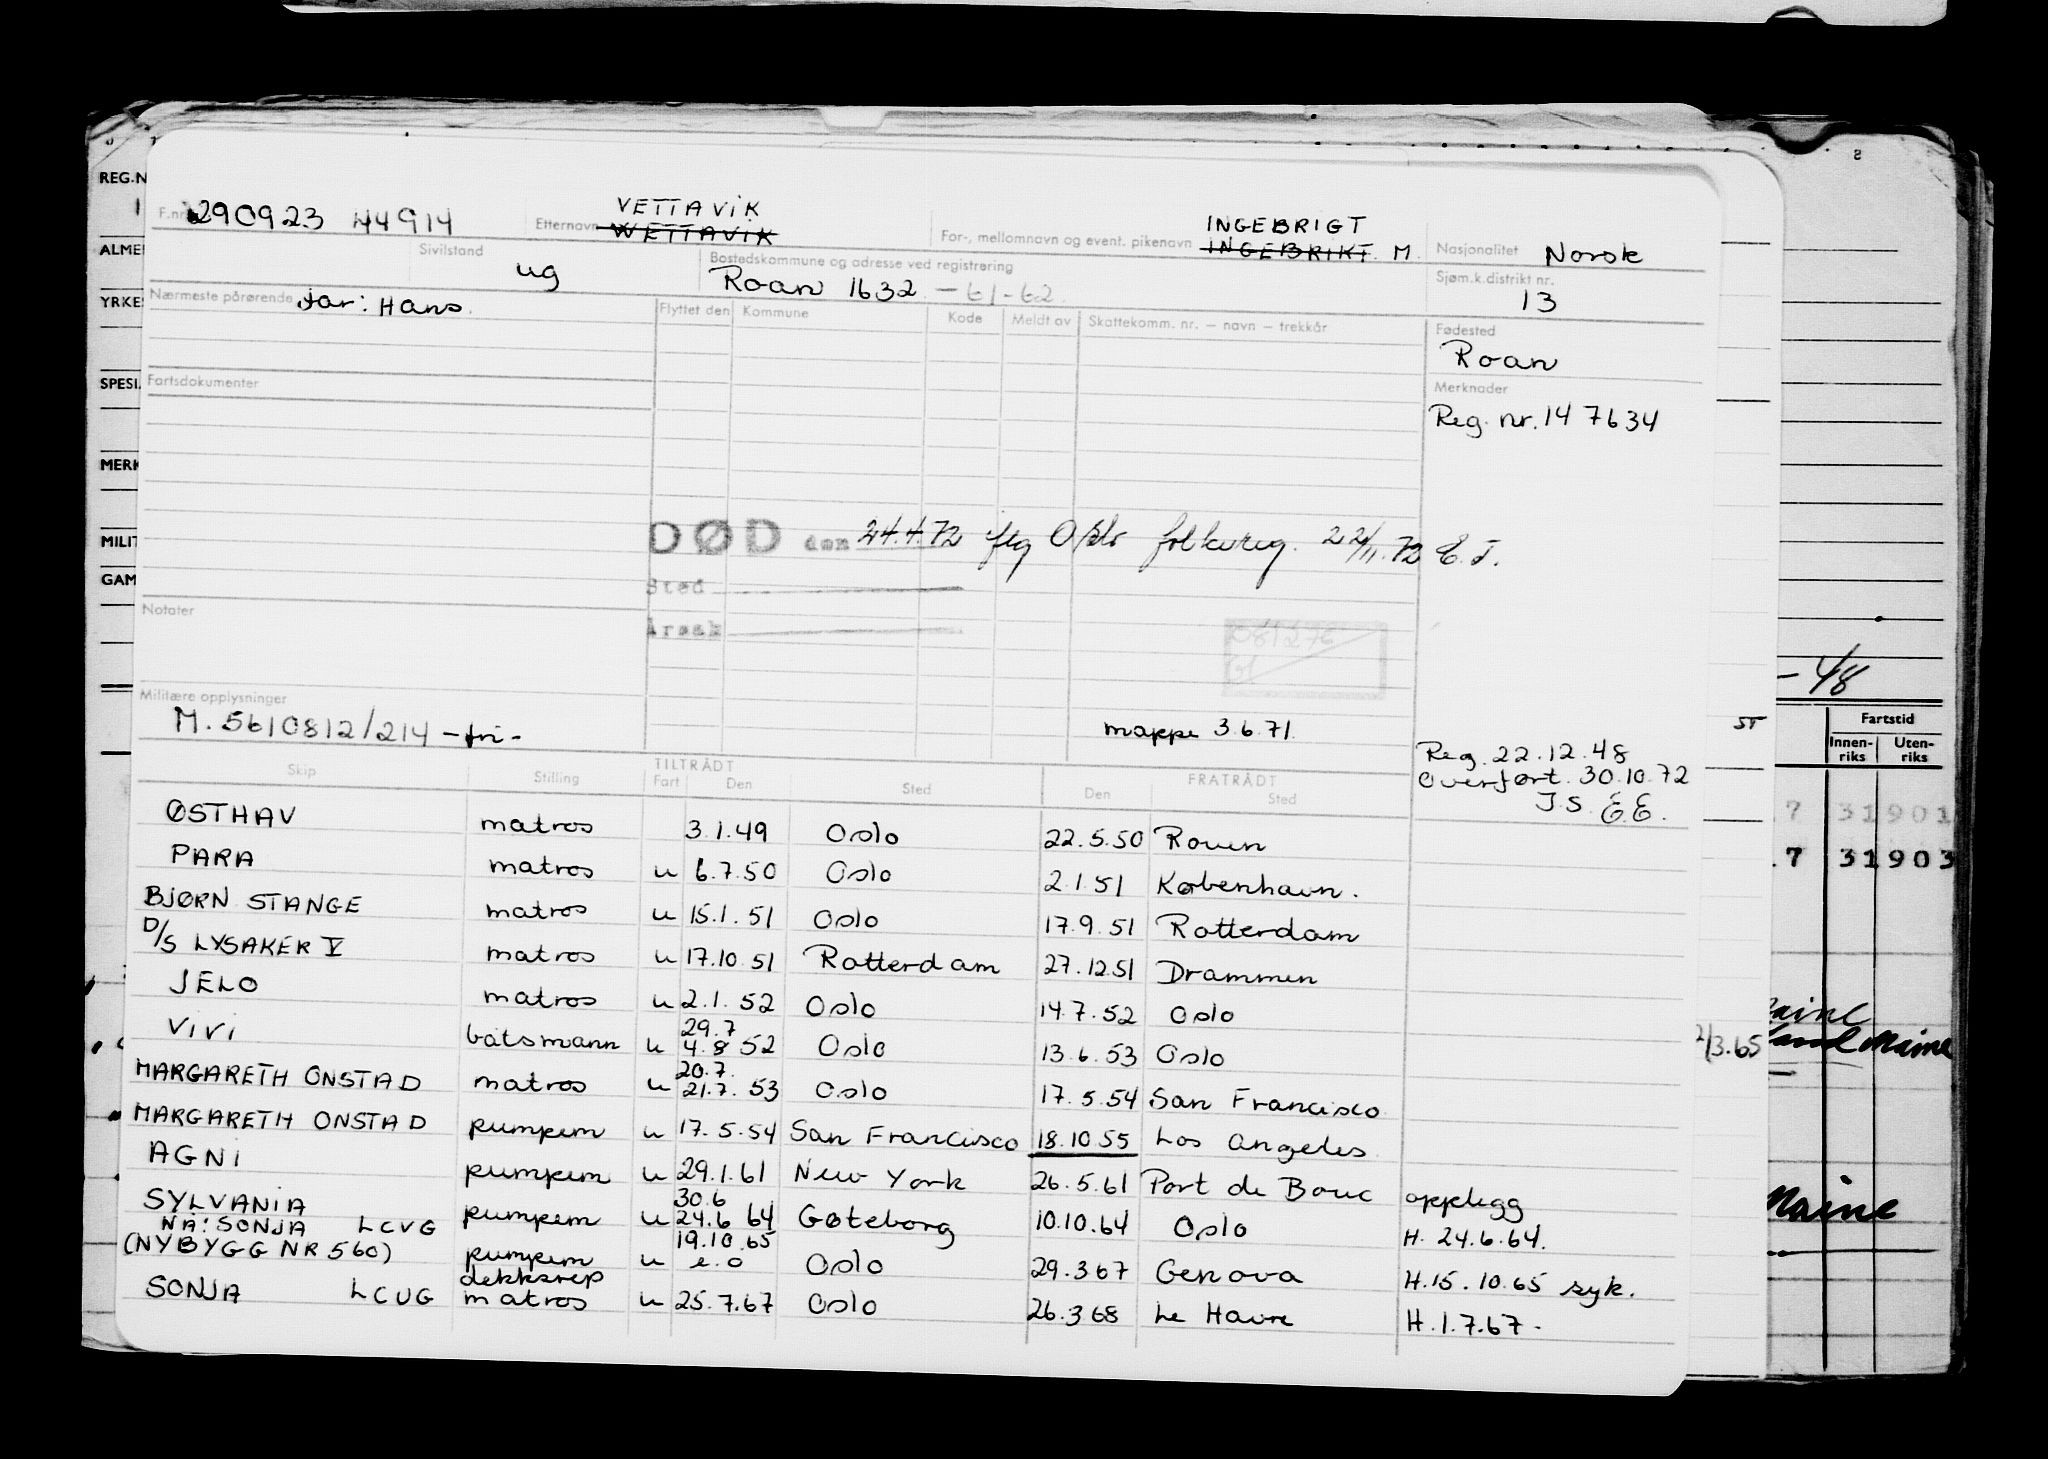 F.nr. 290923 44914 Etternavn VETTAVIK WETTAVIK For-, mellomnavn og event. pikenavn INGEBRIGT INGEBRIKT M. Nasjonalitet Norsk
Sivilstand ug Bostedskommune og adresse ved registrering Roan 1632 - 61-62 Sjøm.k.distrikt nr. 13
Nærmeste pårørende far: Hans. Flyttet den Kommune Kode Meldt av Skattekomm. nr. – navn – trekkår Fødested
Roan
Fartsdokumenter Merknader
Reg. nr. 147634
DØD den 24.4.72 flg Oslo folkereg. 22/11.72 E.J.
Sted
Årsak
Notater
081276
Militære opplysninger
M. 5610812/214 -fri- mappe 3.6.71.
Reg. 22.12.48
Overført. 30.10.72
J.S. E.E.
Skip Stilling TILTRÅDT Fart Den Sted FRATRÅDT Den Sted
ØSTHAV matros 3.1.49 Oslo 22.5.50 Rouen
PARA matros u 6.7.50 Oslo 2.1.51 København.
BJØRN STANGE matros u 15.1.51 Oslo 17.9.51 Rotterdam
D/S LYSAKER V matros u 17.10.51 Rotterdam 27.12.51 Drammen
JELO matros u 2.1.52 Oslo 14.7.52 Oslo
VIVI båtsmann u 29.7 4.8 52 Oslo 13.6.53 Oslo
MARGARETH ONSTAD matros u 20.7. 21.7. 53 Oslo 17.5.54 San Francisco
MARGARETH ONSTAD pumpem u 17.5.54 San Francisco 18.10.55 Los Angeles
AGNI pumpem u 29.1.61 New York 26.5.61 Port de Bouc opplegg
SYLVANIA pumpem u 30.6 24.6 64 Gøteborg 10.10.64 Oslo H. 24.6.64.
NÅ: SONJA LCVG
(NYBYGG NR 560) pumpem u 19.10.65 e.o Oslo 29.3 67 Genova H.15.10.65 syk.
SONJA LCUG dekksrep matros u 25.7.67 Oslo 26.3 68 Le Havre H.1.7.67.
REG.N
ALME
YRKE
SPESI
MERK
MILIT
GAM
- 48
ST
Fartstid
Innen-riks Uten-riks
7 31901
.7 31903
2/3.65
Maine
Maine